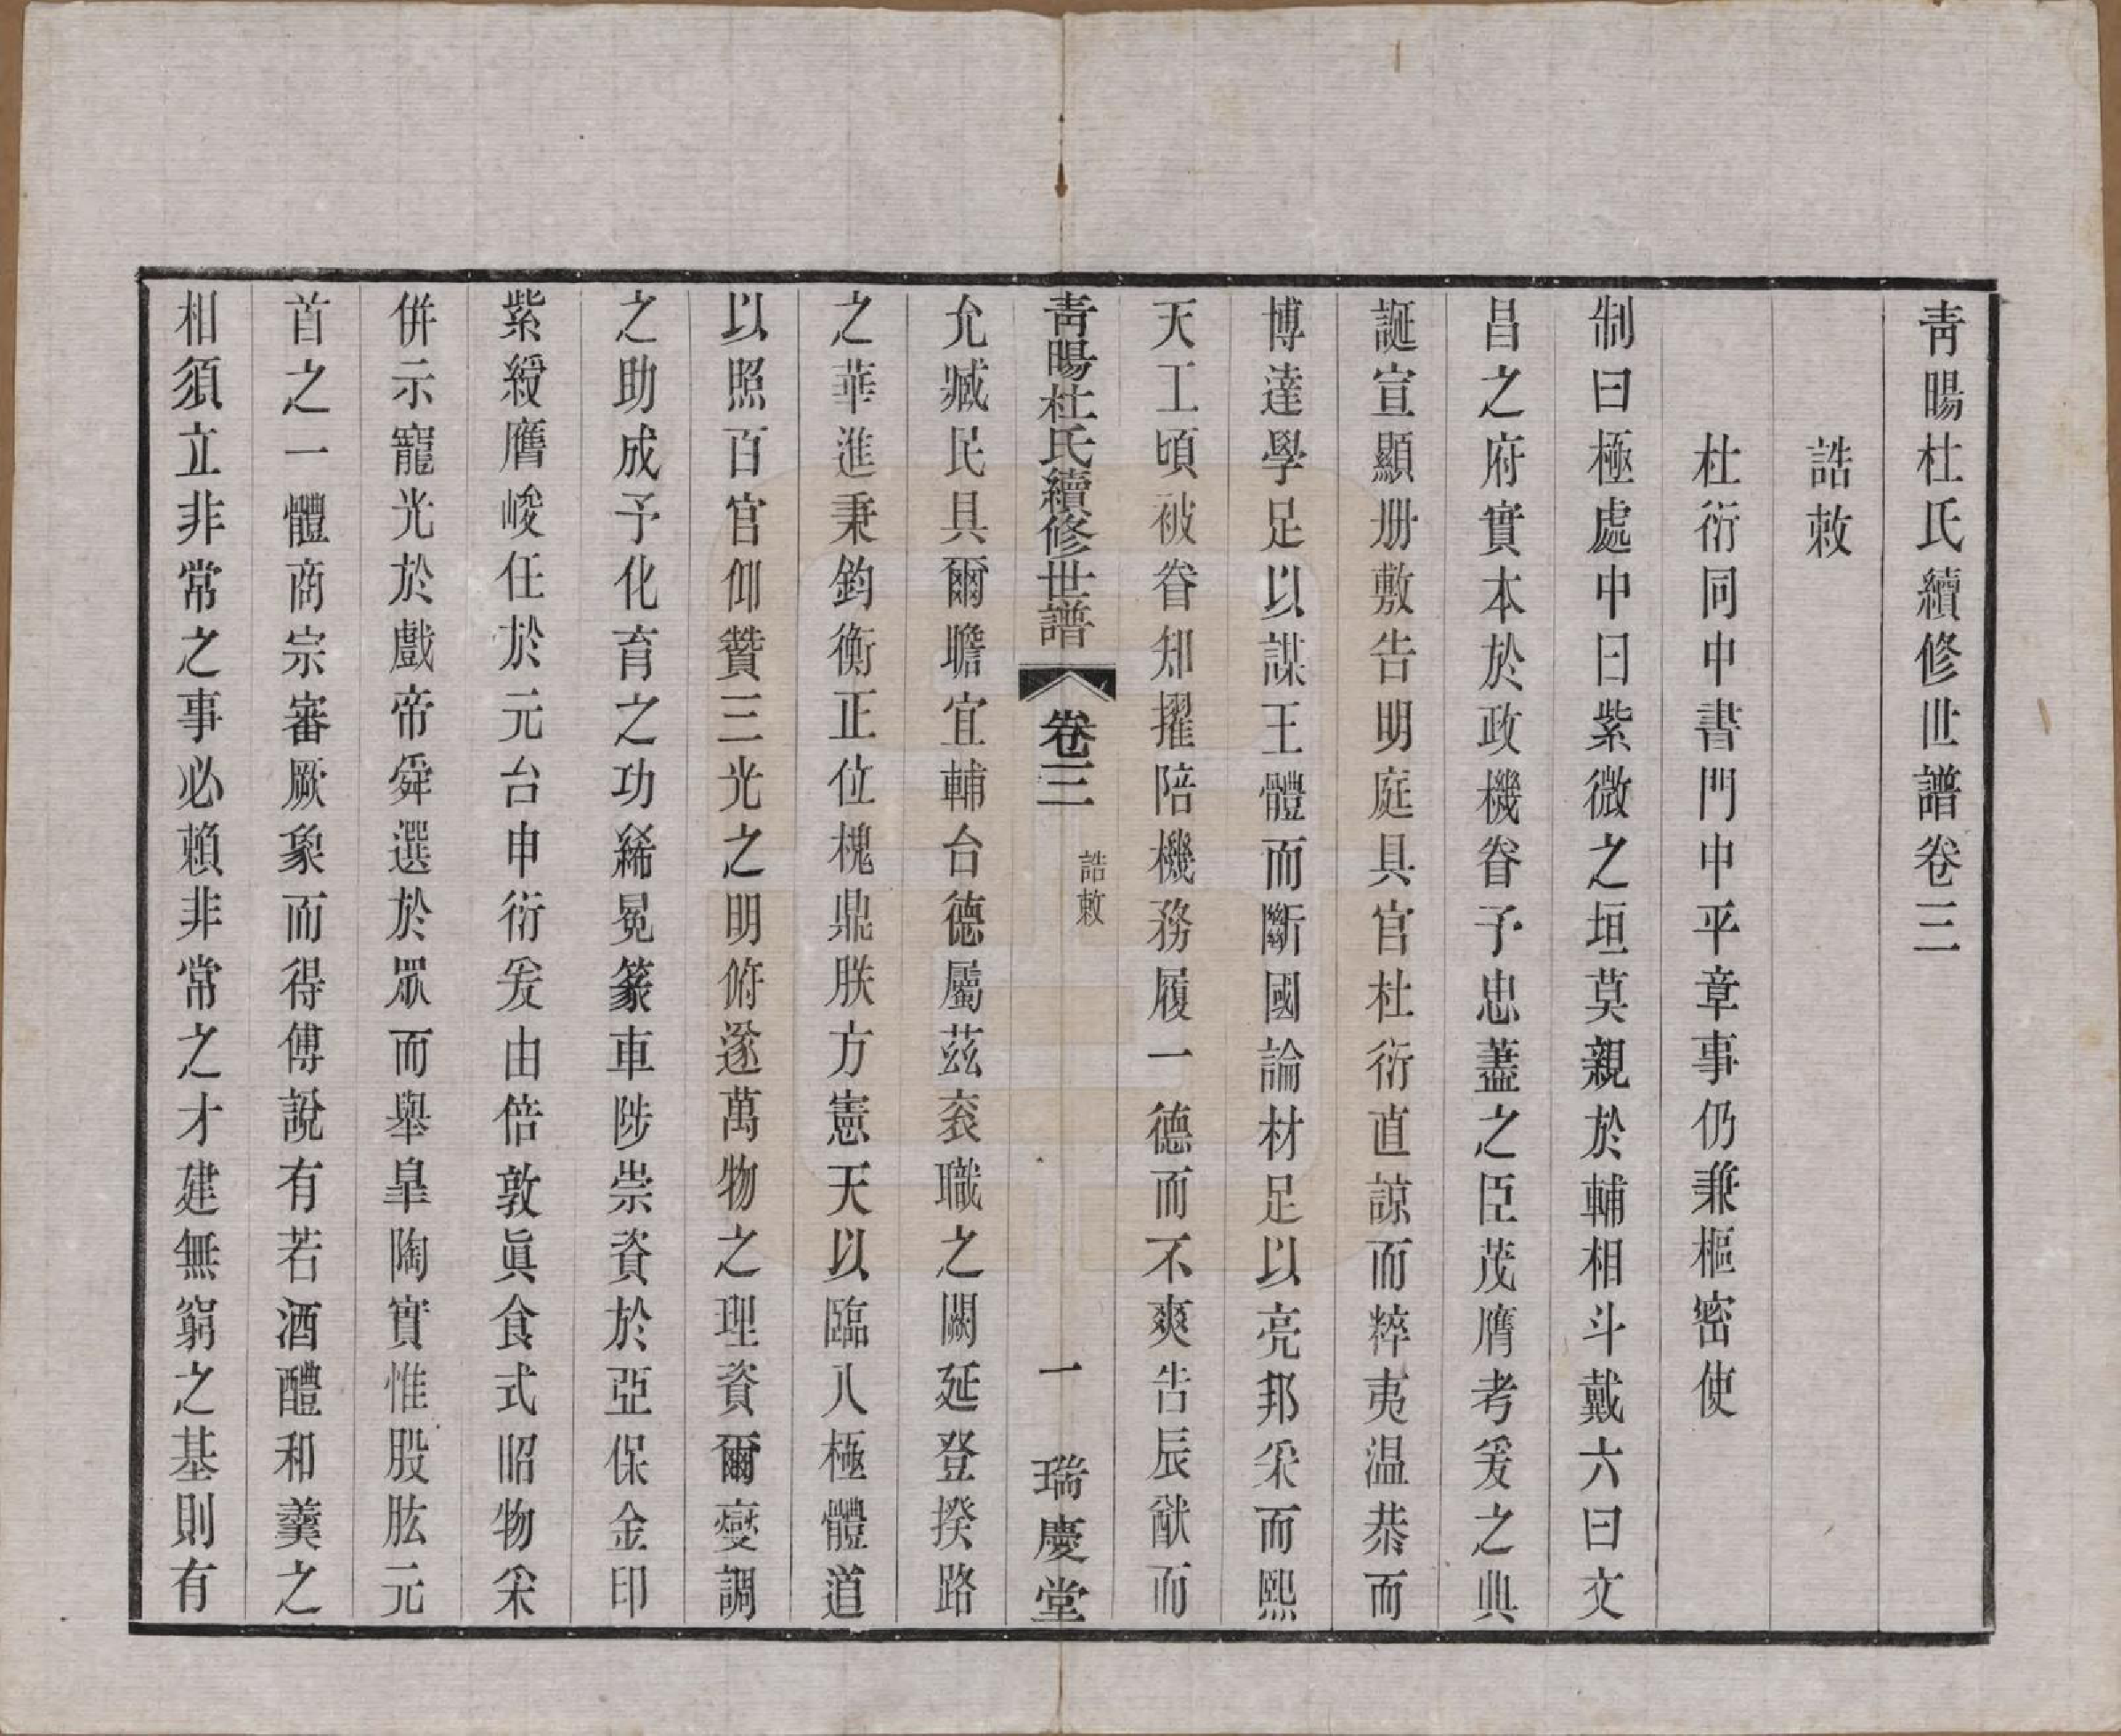 靑暘杜氏續修世譜卷三
誥敕
杜衍同中書門中平章事仍兼樞密使
制曰極處中曰紫微之垣莫親於輔相斗戴六曰文
昌之府實本於政機眷予忠藎之臣茂膺考爰之典
誕宣顯册敷告明庭具官杜衍直諒而粹夷温恭而
博達學足以謀王體而斷國論材足以亮邦采而熙
天工頃被眷知擢陪機務履一德而不爽告辰猷而
靑暘杜氏續修世譜 卷三 誥敕 一 瑞慶堂
允臧民具爾瞻宜輔台德屬茲衮職之闕延登揆路
之華進秉鈞衡正位槐鼎朕方憲天以臨八極體道
以照百官仰贊三光之明俯遂萬物之理資爾燮調
之助成予化育之功絺冕篆車陟崇資於亞保金印
紫綬膺峻任於元台申衍爰由倍敦眞食式昭物采
併示寵光於戲帝舜選於眾而舉臯陶實惟股肱元
首之一體商宗審厥象而得傅說有若酒醴和羹之
相須立非常之事必賴非常之才建無窮之基則有